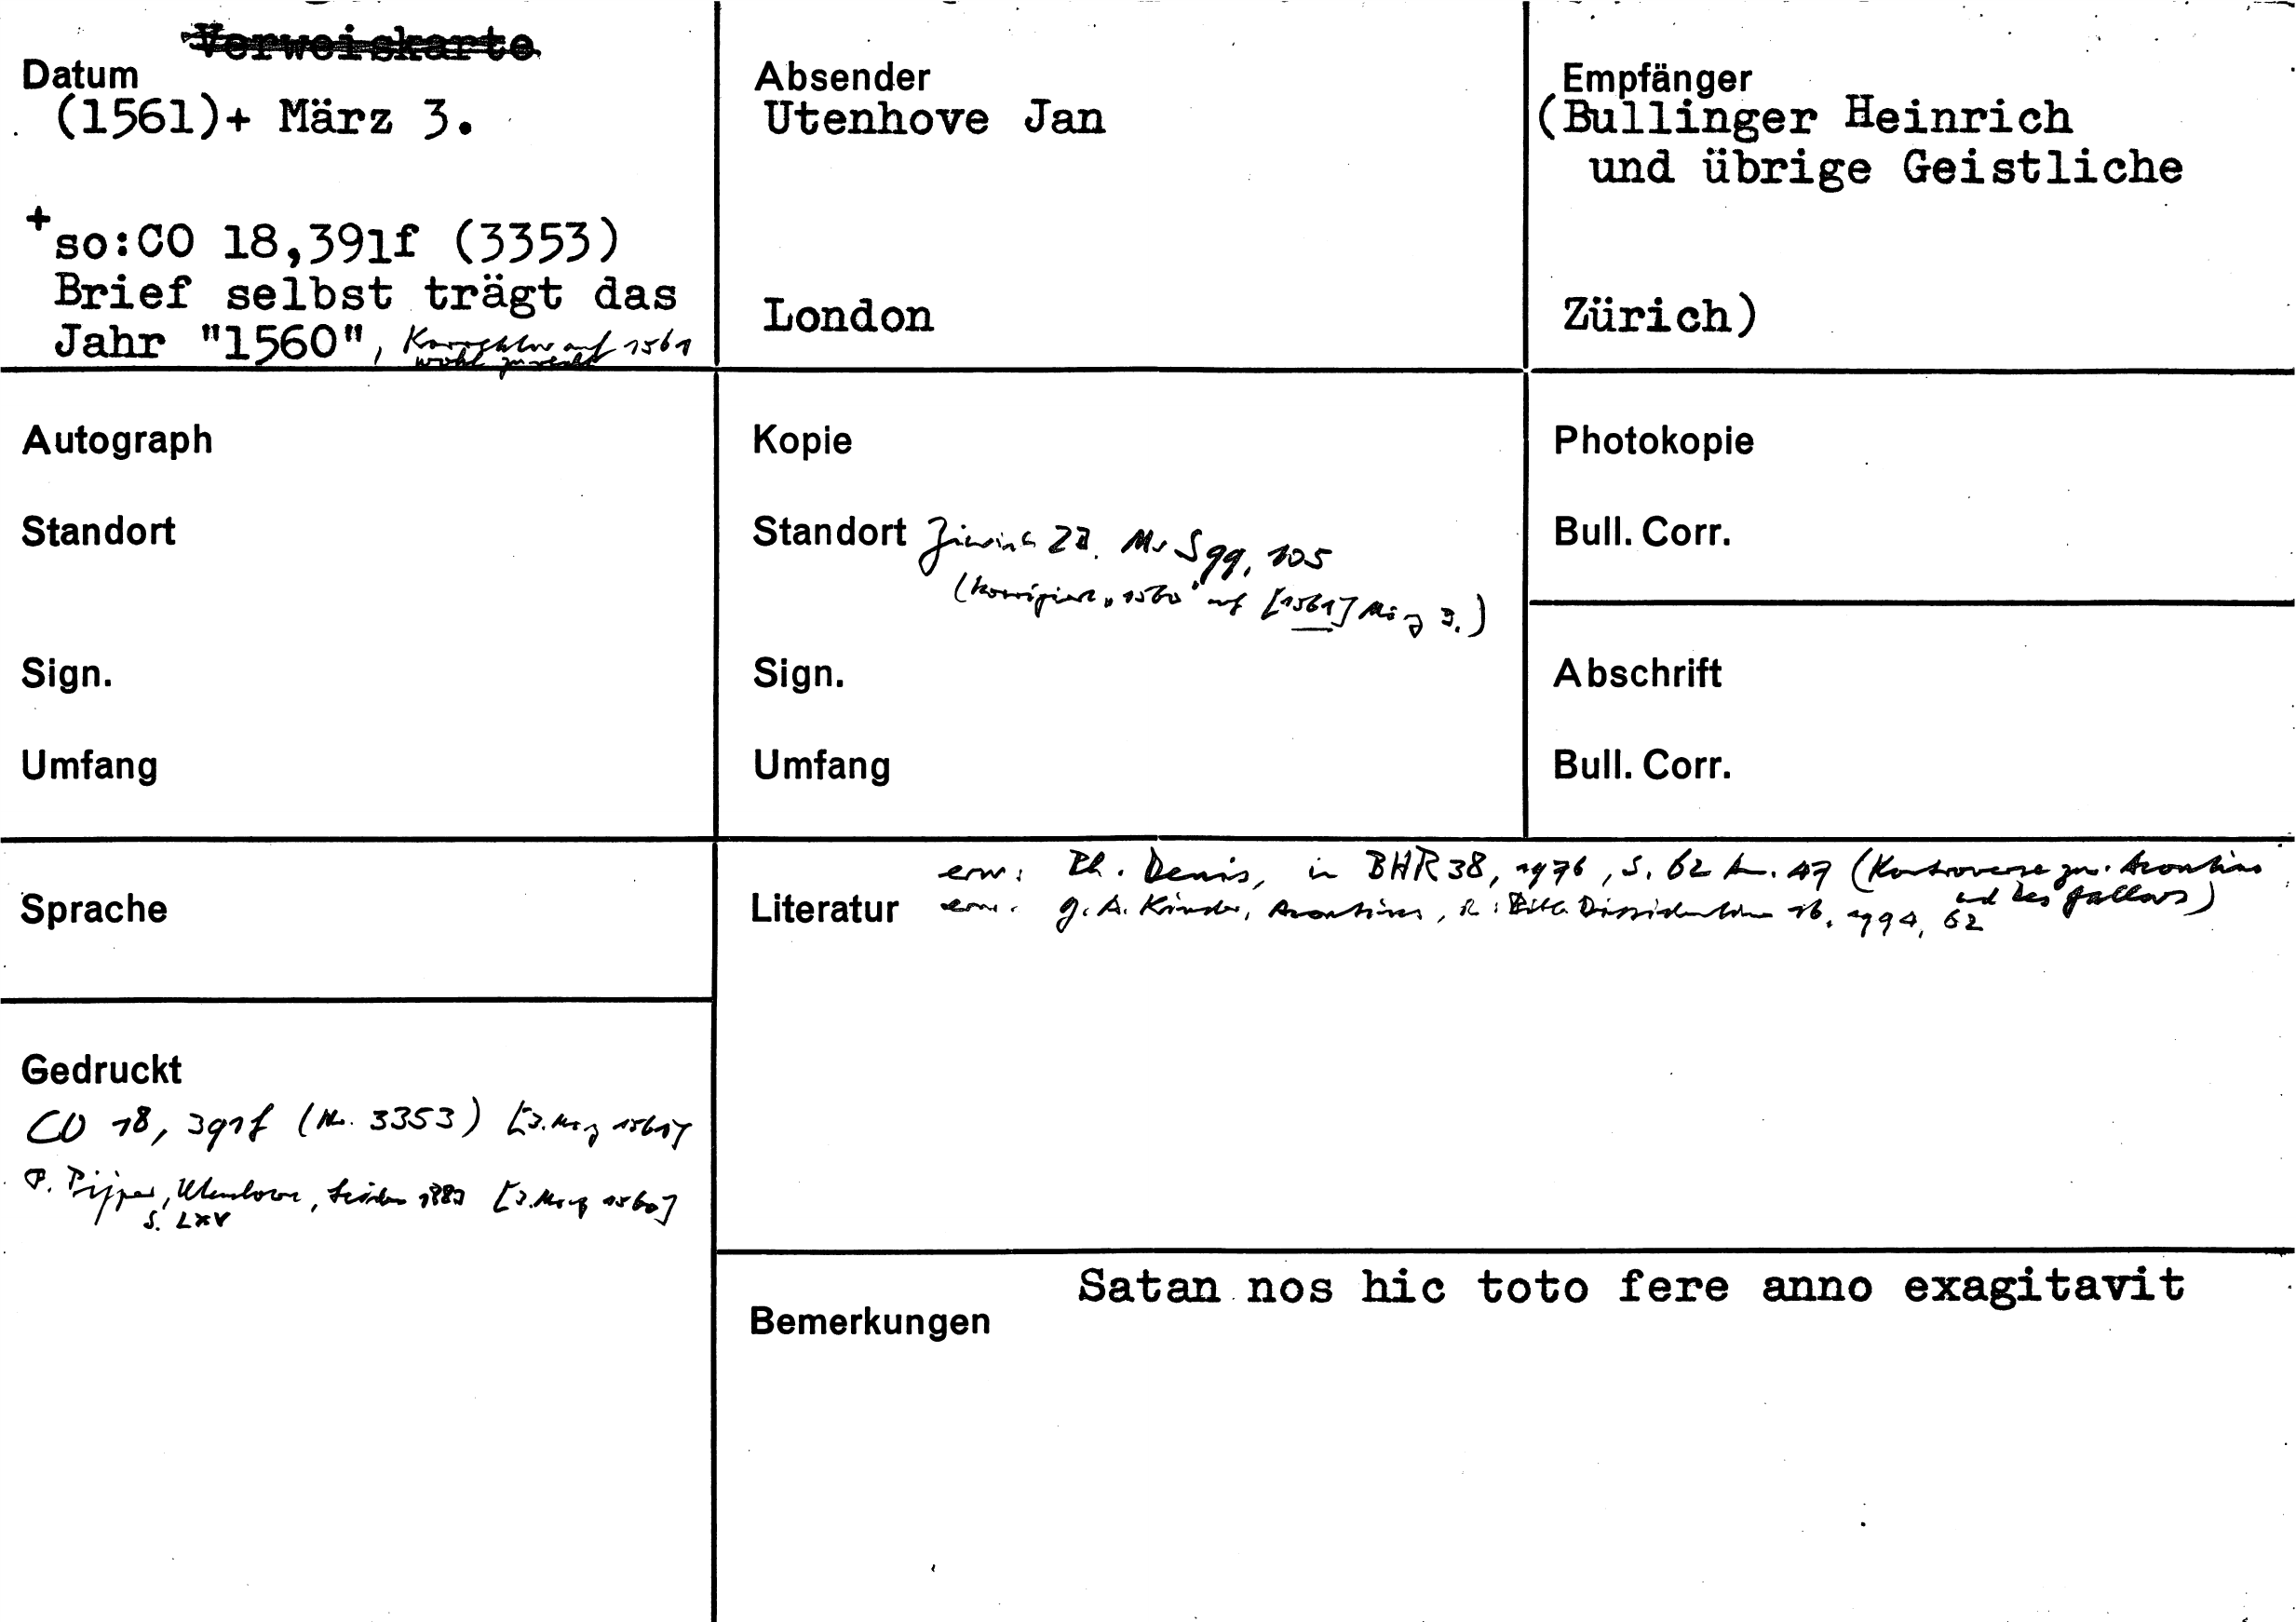 Verweiskarte
Datum
(1561)+ März 3.
+
so:CO 18,391f (3353)
Brief selbst trägt das
Jahr "1560", Korrektur auf 1561
wohl zu recht
Absender
Utenhove Jan
London
Empfänger
(Bullinger Heinrich
und übrige Geistliche
Zürich)
Autograph
Standort
Sign.
Umfang
Kopie
Standort Zürich ZB. Ms S 99, 105
(korrigiert „1560" auf [1561] März 3.)
Sign.
Umfang
Photokopie
Bull. Corr.
Abschrift
Bull. Corr.
Sprache
Gedruckt
CO 18, 391f (Nr. 3353) [3. März 1561]
F. Pijper, Utenhove, Leiden 1883 [3. März 1560]
S. LXV
erw: Ph. Denis, in BHR 38, 1976, S. 62 A. 47 (Kontroverse zw. Acontius
und des Gallars)
Literatur erw. G. A. Kinder, Acontius, Bibl. Dissidentium 16, 1994, 62
Satan nos hic toto fere anno exagitavit
Bemerkungen